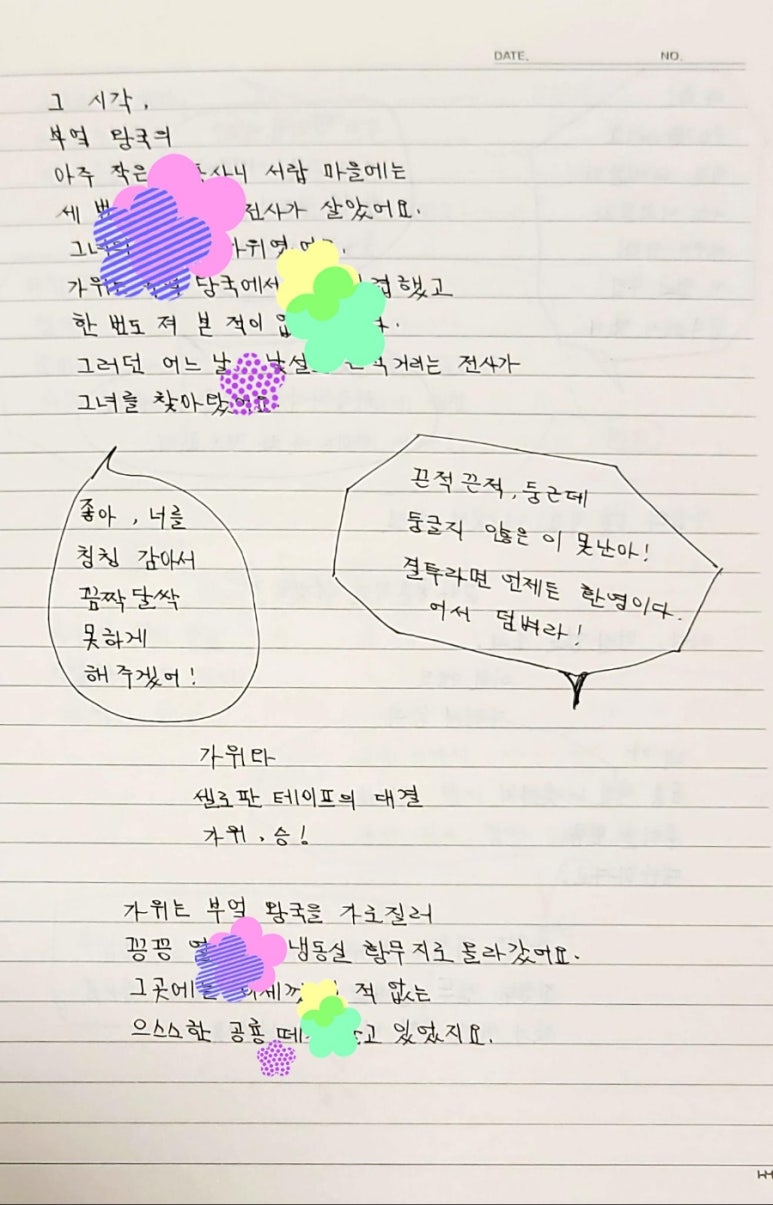 DATE.
NO.
그 시각,
부엌 왕국의
아주 작은 서랍 마을에는
세 전사가 살았어요.
당국에서
한 번도 져 본 적이
그러던 어느 날 전사가
그녀를 찾아왔어요
좋아, 너를
칭칭 감아서
꼼짝달싹
못하게
해 주겠어!
끈적끈적, 둥근데
둥글지 않은 이 못난아!
결투라면 언제든 환영이다.
어서 덤벼라!
가위타
센로판 테이프의 대결
가위, 승!
가위는 부엌 왕국을 가로질러
꽁꽁 냉동실 황무지로 올라갔어요.
적 없는
으스스한 공룡 있었지요.